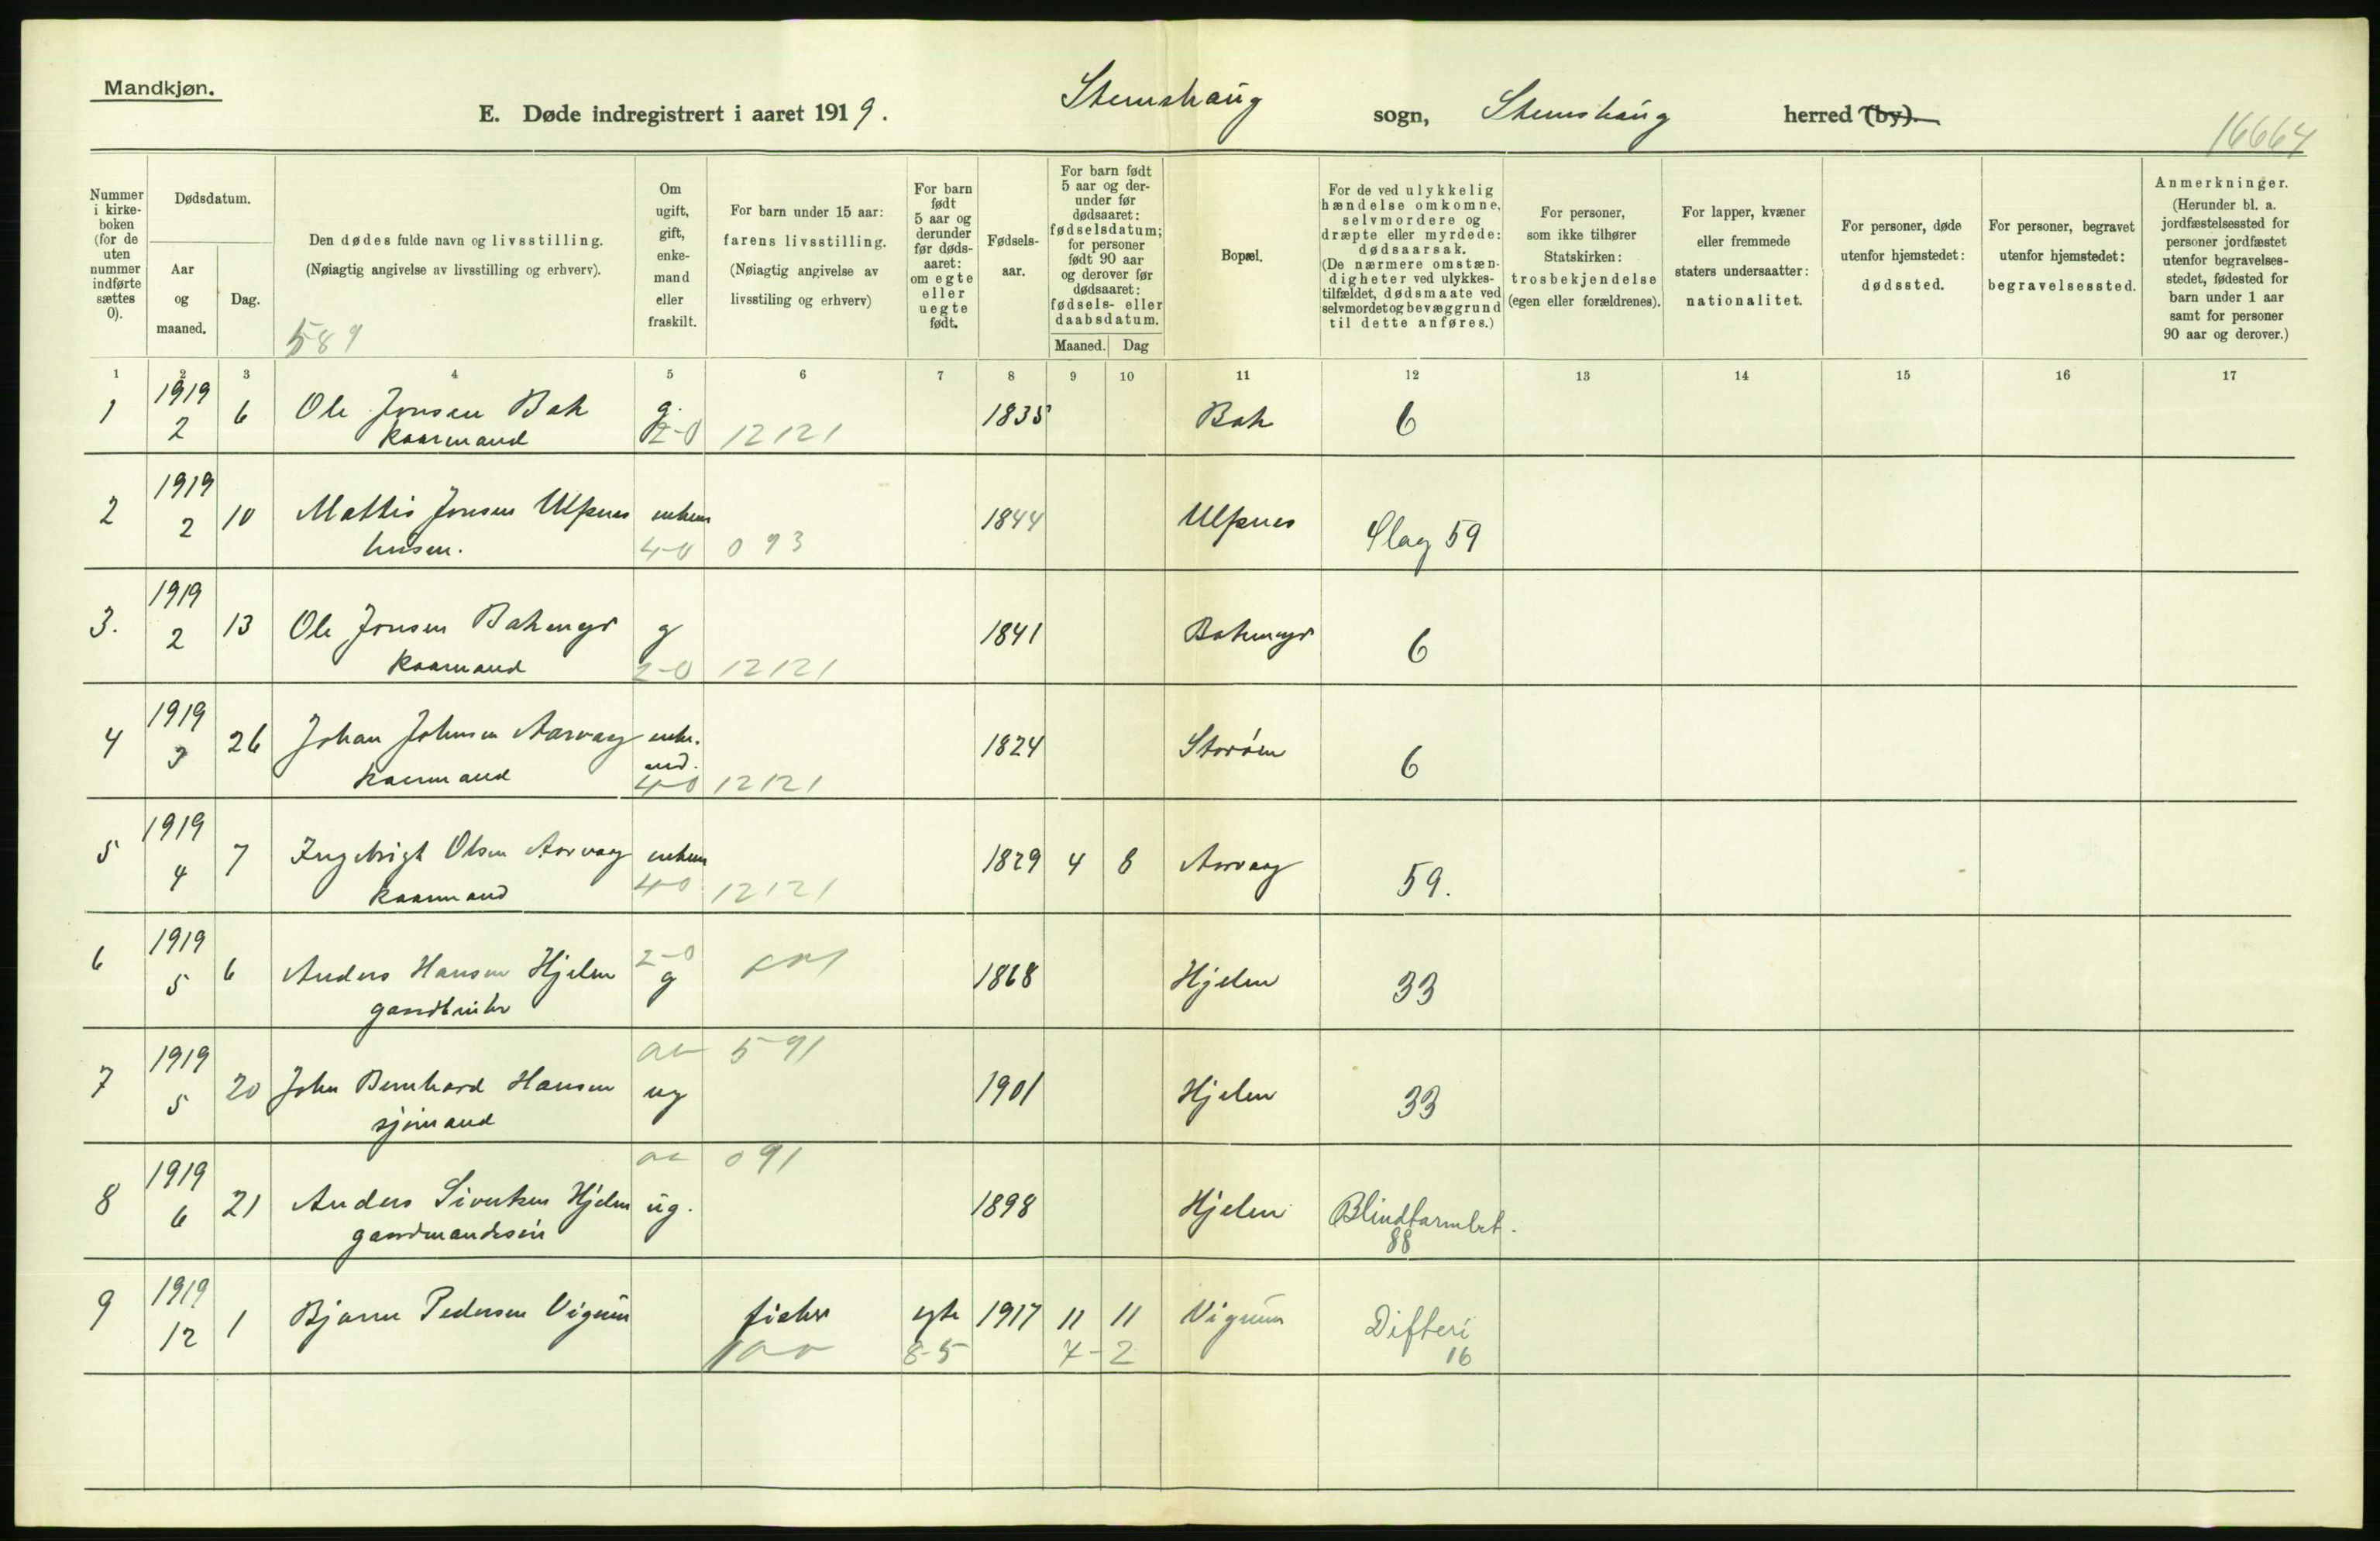 Mandkjøn.
E. Døde indregistrert i aaret 1919. Stemshaug sogn, Stemshaug herred (by).
16664
Nummer i kirkeboken (for de uten nummer indførte sættes 0).
Dødsdatum.
Aar og maaned.
Dag.
Den dødes fulde navn og livsstilling.
(Nøiagtig angivelse av livsstilling og erhverv).
589
Om ugift, gift, enkemand eller fraskilt.
For barn under 15 aar: farens livsstilling.
(Nøiagtig angivelse av livsstiling og erhverv)
For barn født 5 aar og derunder før dødsaaret: om egte eller uegte født.
Fødselsaar.
For barn født 5 aar og derunder før dødsaaret: fødselsdatum; for personer født 90 aar og derover før dødsaaret: fødsels- eller daabsdatum.
Maaned. Dag
Bopæl.
For de ved ulykkelig hændelse omkomne, selvmordere og dræpte eller myrdede: dødsaarsak.
(De nærmere omstændigheter ved ulykkestilfældet, dødsmaate ved selvmordet og bevæggrund til dette anføres.)
For personer, som ikke tilhører Statskirken: trosbekjendelse (egen eller forældrenes).
For lapper, kvæner eller fremmede staters undersaatter: nationalitet.
For personer, døde utenfor hjemstedet: dødssted.
For personer, begravet utenfor hjemstedet: begravelsessted.
Anmerkninger.
(Herunder bl. a. jordfæstelsessted for personer jordfæstet utenfor begravelsesstedet, fødested for barn under 1 aar samt for personer 90 aar og derover.)
1 2 3 4 5 6 7 8 9 10 11 12 13 14 15 16 17
1 1919 2 6 Ole Jonsen Bak g. 1835 Bak 6
kaarmand 2-0 12121
2 1919 2 10 Mattis Jonsen Ulfsnes enkem 1844 Ulfsnes Slag 59
husm. 4-0 093
3. 1919 2 13 Ole Jonsen Bakmyr g 1841 Bakmyr 6
kaarmand 2-0 12121
4 1919 3 26 Johan Johnsen Aarvaag enke. md. 1824 Storøen 6
kaarmand 4-0 12121
5 1919 4 7 Ingebrigt Olsen Aarvaag enkem 1829 4 8 Aarvaag 59.
kaarmand 4-0 12121
6 1919 5 6 Anders Hansen Hjelen 2-0 g 1868 Hjelen 33
gaardbruker
7 1919 5 20 John Bernhard Hansen ug 591 1901 Hjelen 33
sjømand
8 1919 6 21 Anders Sivertsen Hjelen ug. 091 1898 Hjelen Blindtarmbet.
gaardmandssøn 88
9 1919 12 1 Bjarne Pedersen Vigum fisker egte 1917 11 11 Vigum Difteri
8-5 7-2 16